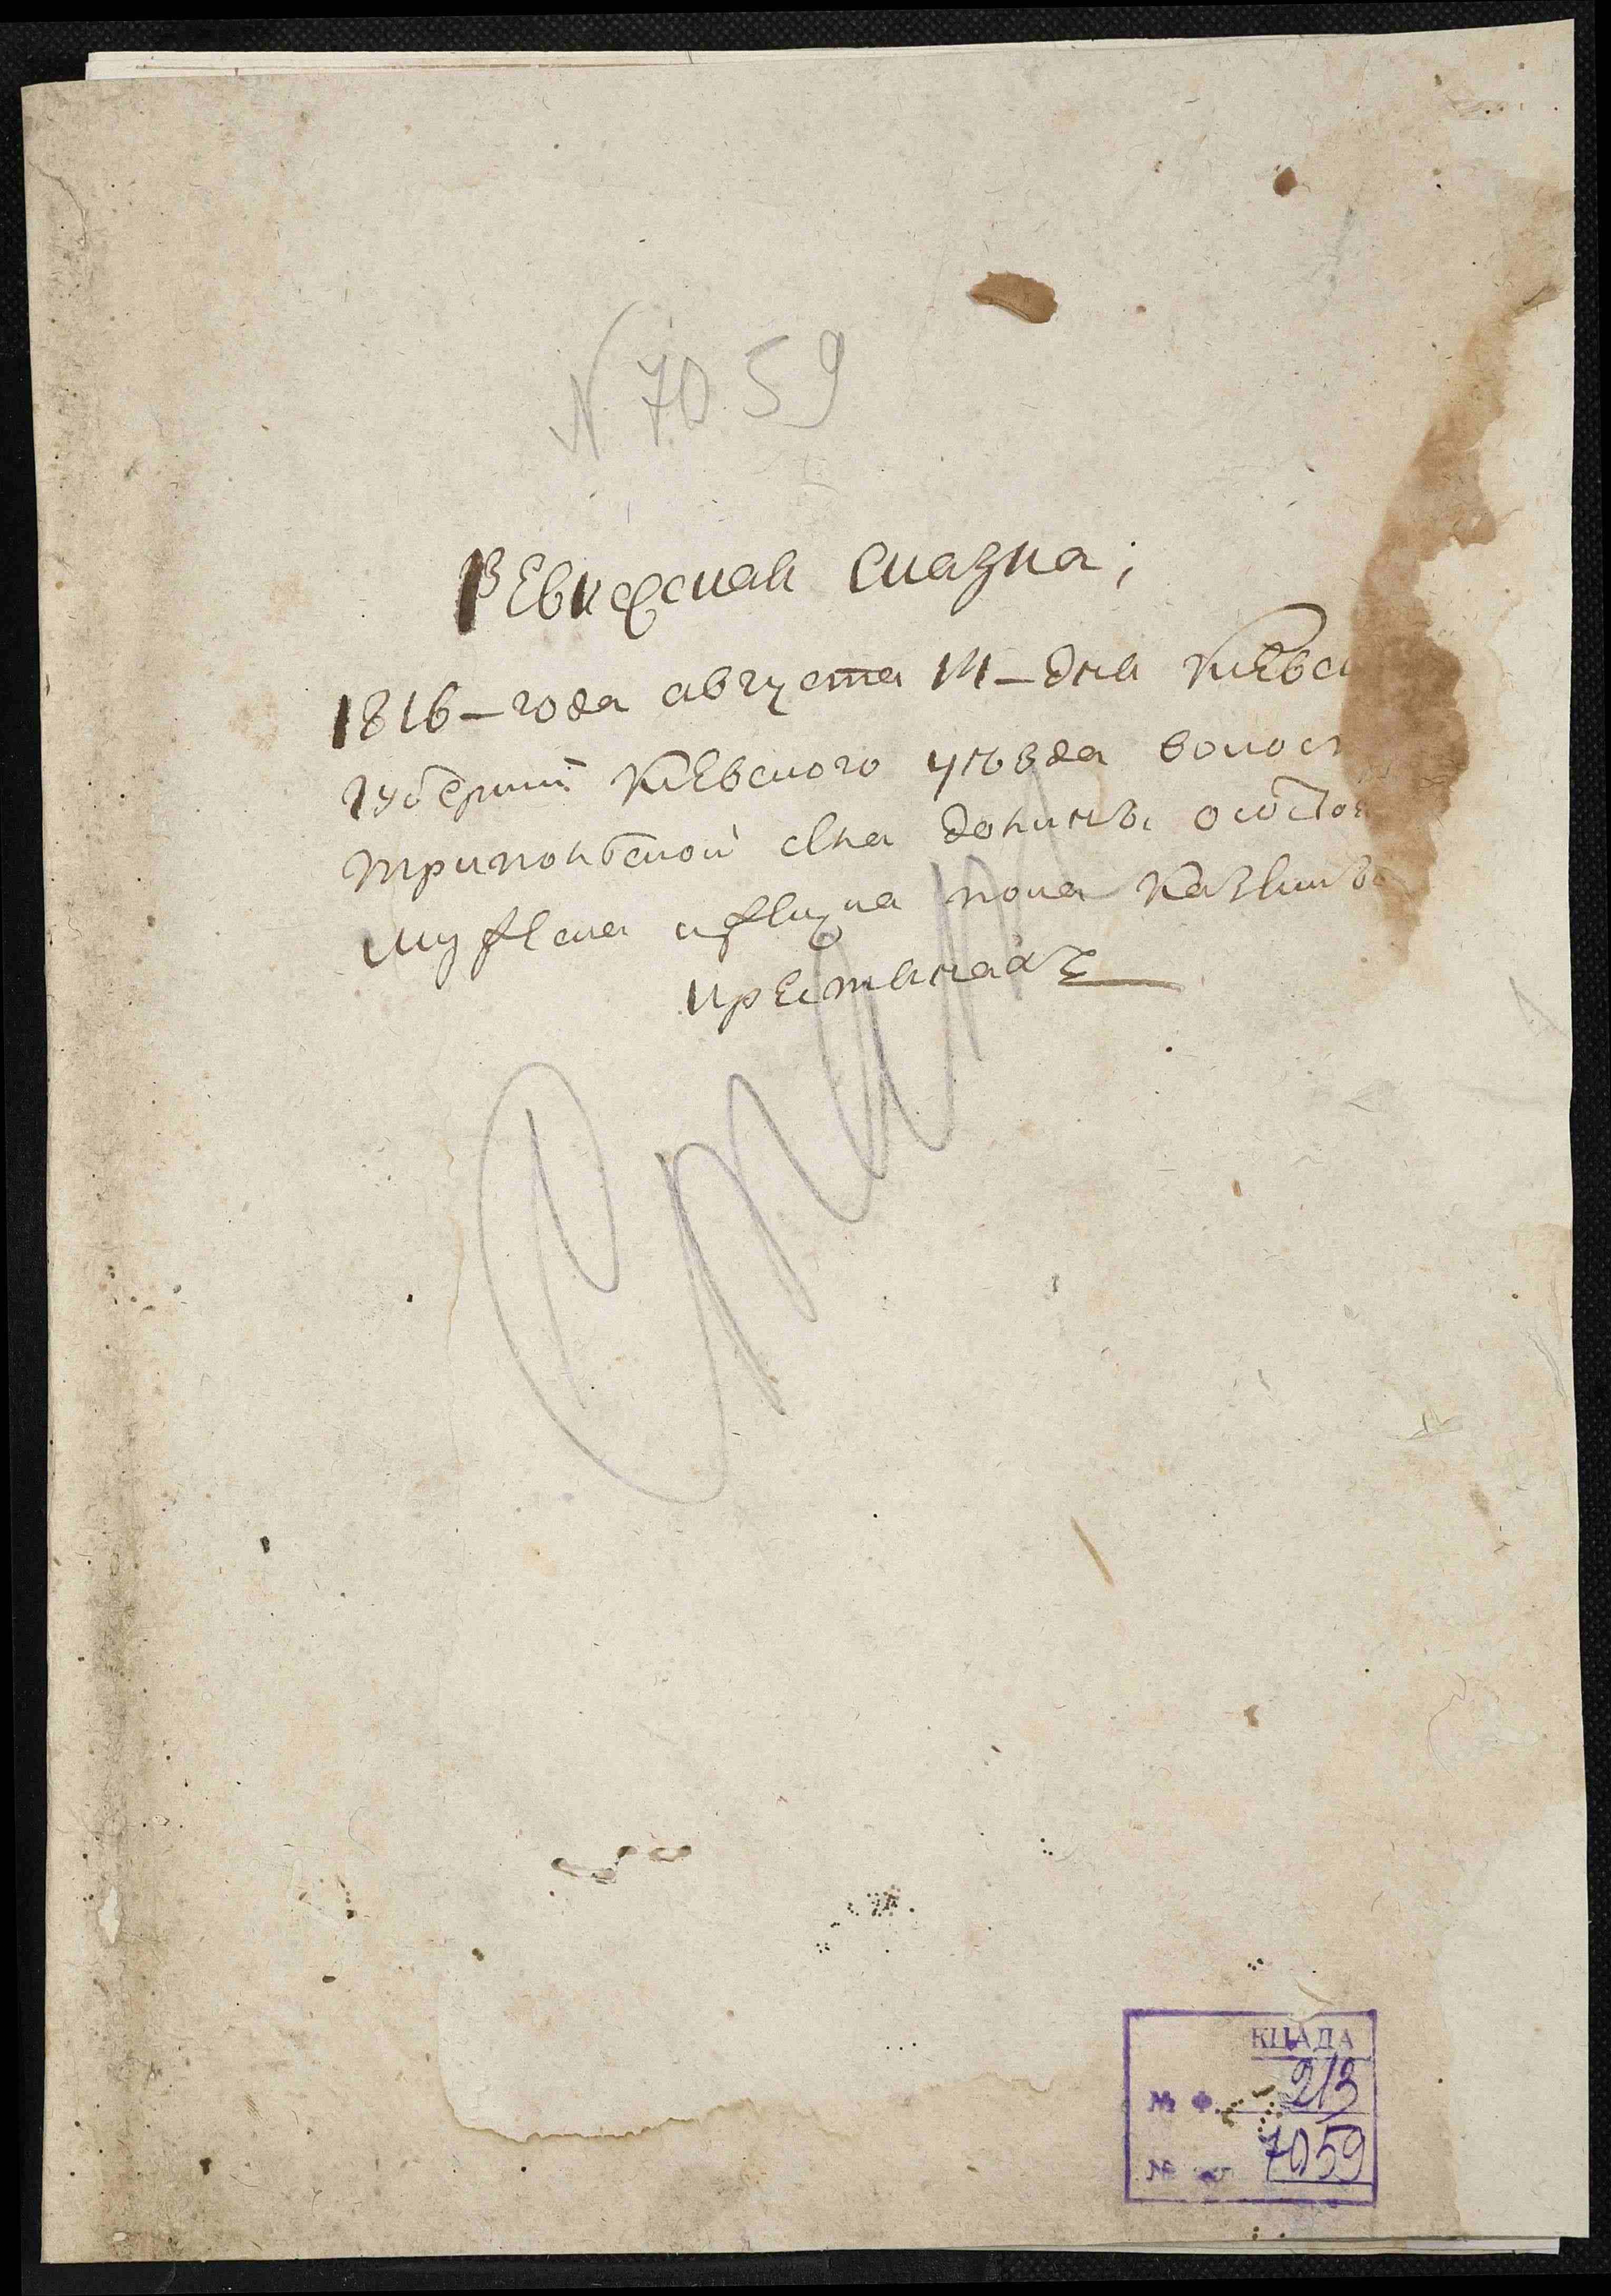 N 7059
Ревизская Сказка;
1816-года августа 14-дня Киевск
Губернии Киевского уѣзда волост
трипольской села долины о состоя
мужеска и женска пола казенныхъ
крестьянахъ
КЦАДА
№ Ф. 213
№ 7059